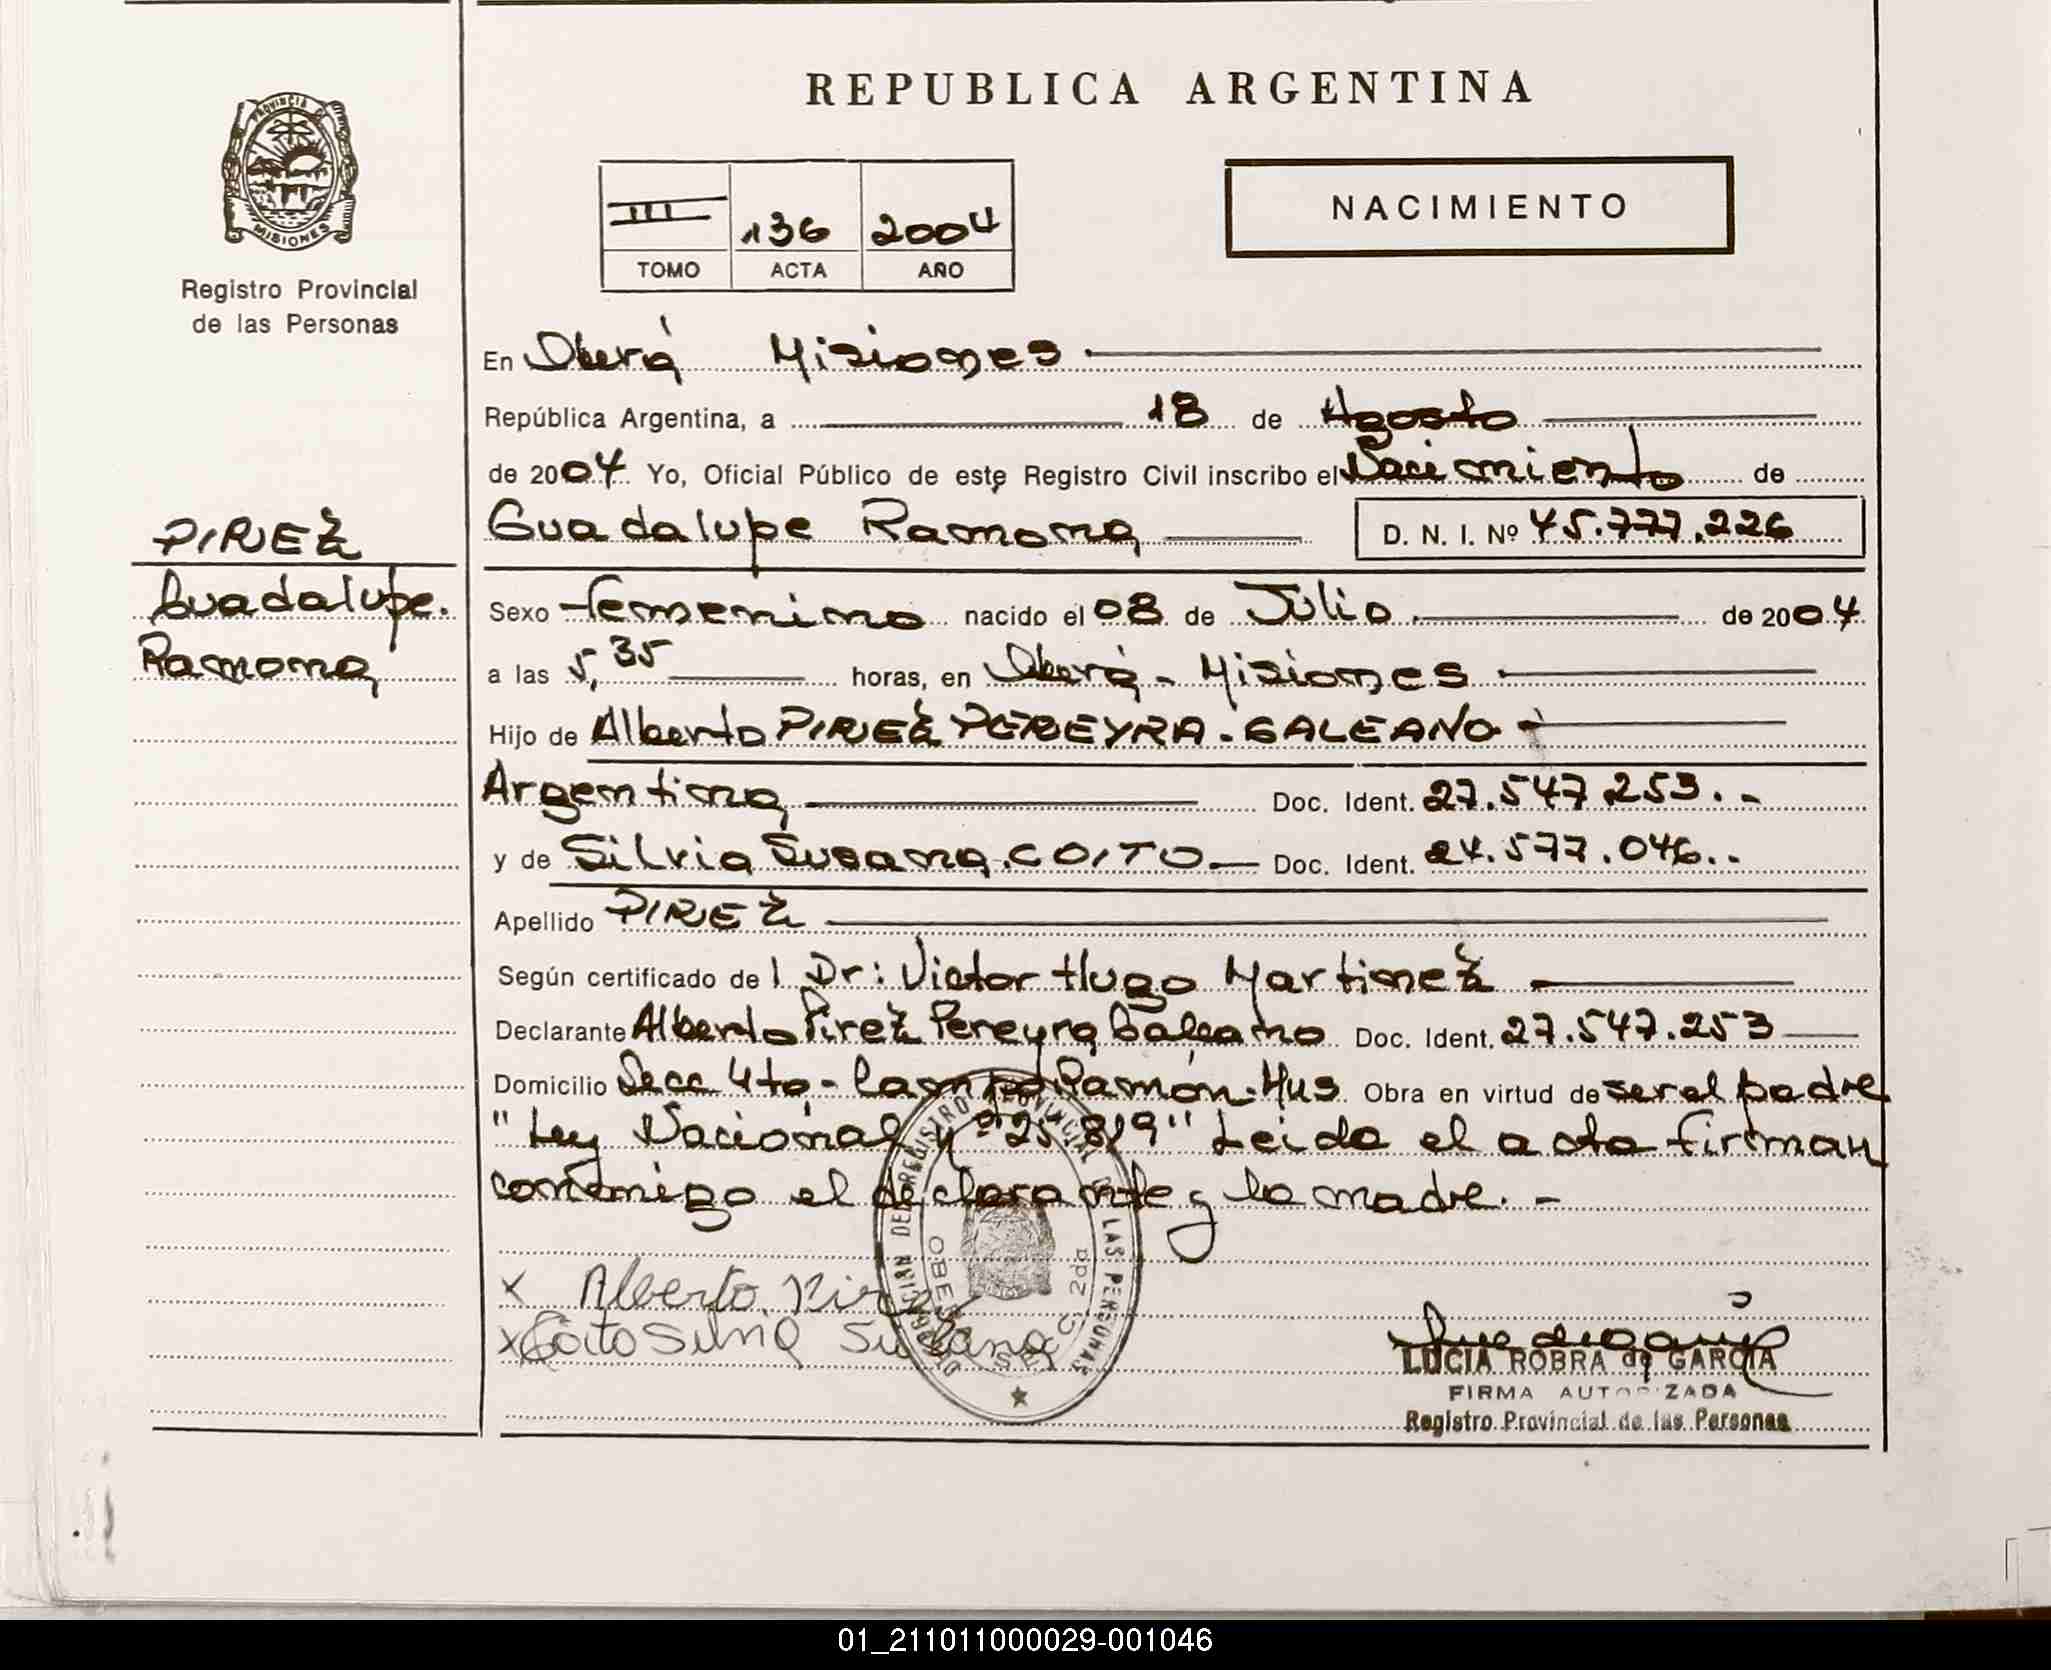 REPUBLICA ARGENTINA
PROVINCIA DE
MISIONES
Registro Provincial
de las Personas
III 136 2004
TOMO ACTA AÑO
NACIMIENTO
En Oberá Misiones
República Argentina, a 18 de Agosto
de 2004 Yo, Oficial Público de este Registro Civil inscribo el Nacimiento de
PIREZ
Guadalupe Ramona D. N. I. Nº 45.777.226
Guadalupe.
Sexo femenino nacido el 08 de Julio de 2004
Ramona
a las 5,35 horas, en Oberá - Misiones
Hijo de Alberto PIREZ PEREYRA - GALEANO -
Argentina Doc. Ident. 27.547.253. -
y de Silvia Susana COITO Doc. Ident. 24.577.046. -
Apellido PIREZ
Según certificado de l Dr: Victor Hugo Martinez
Declarante Alberto Pirez Pereyra Galeano Doc. Ident. 27.547.253
Domicilio Secc 4ta - Campo Ramón - Mns Obra en virtud de ser el padre
"Ley Nacional nº 25.819" Leida el acta firman
conmigo el declarante y la madre. -
x Alberto. Pirez
x Coito Silvia Susana
LUCIA ROBRA de GARCIA
FIRMA AUTORIZADA
Registro Provincial de las Personas
01_211011000029-001046